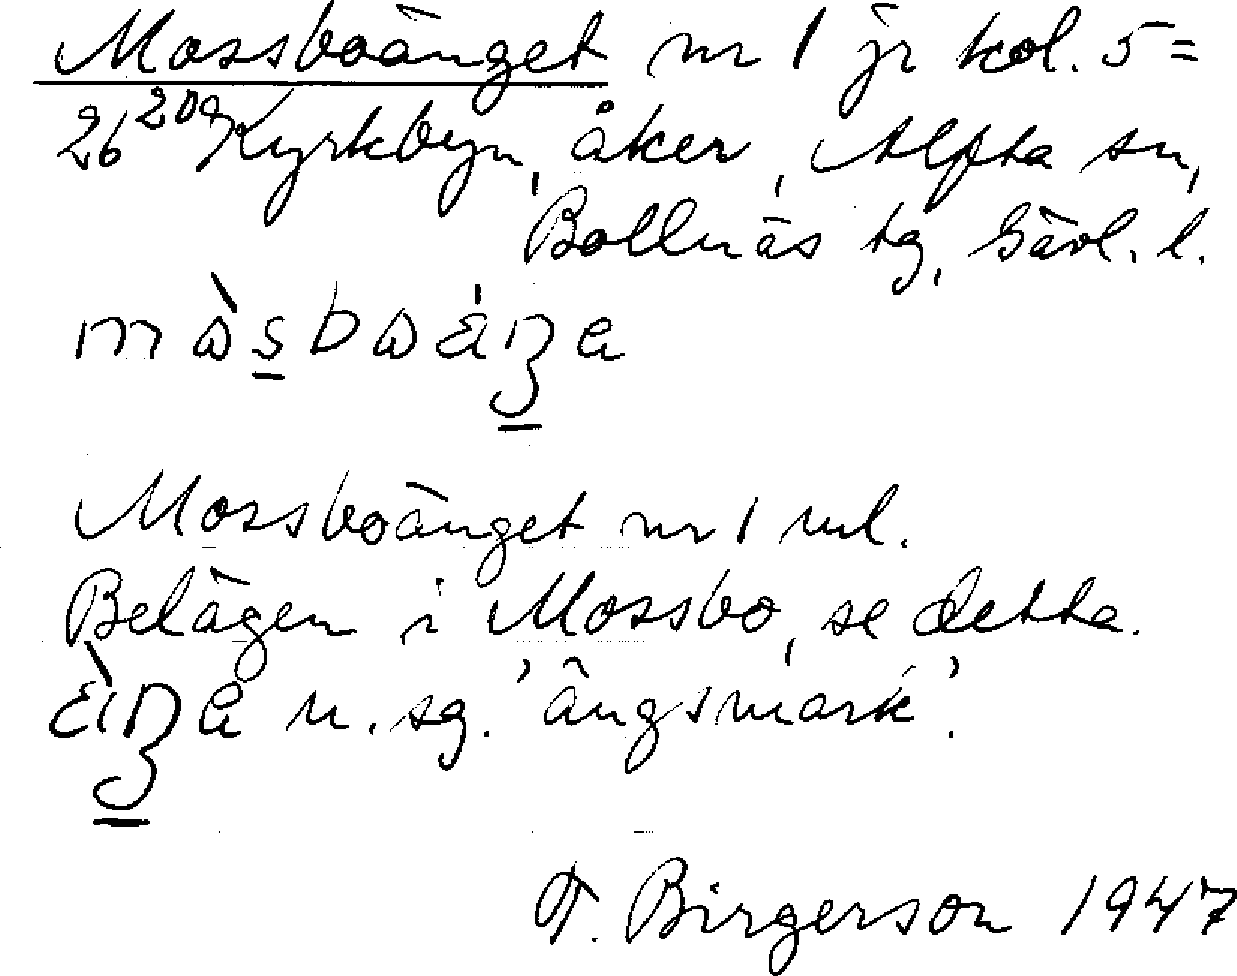 Mossboänget nr 1 jr kol. 5 =
26 20g Kyrkbyn, åker, Alfta sn,
Bollnäs tg, Gävl. l.
Mossboänget nr 1 ml.
Belägen i Mossbo, se detta.
n. sg. 'ängsmark'.
T. Birgerson 1947